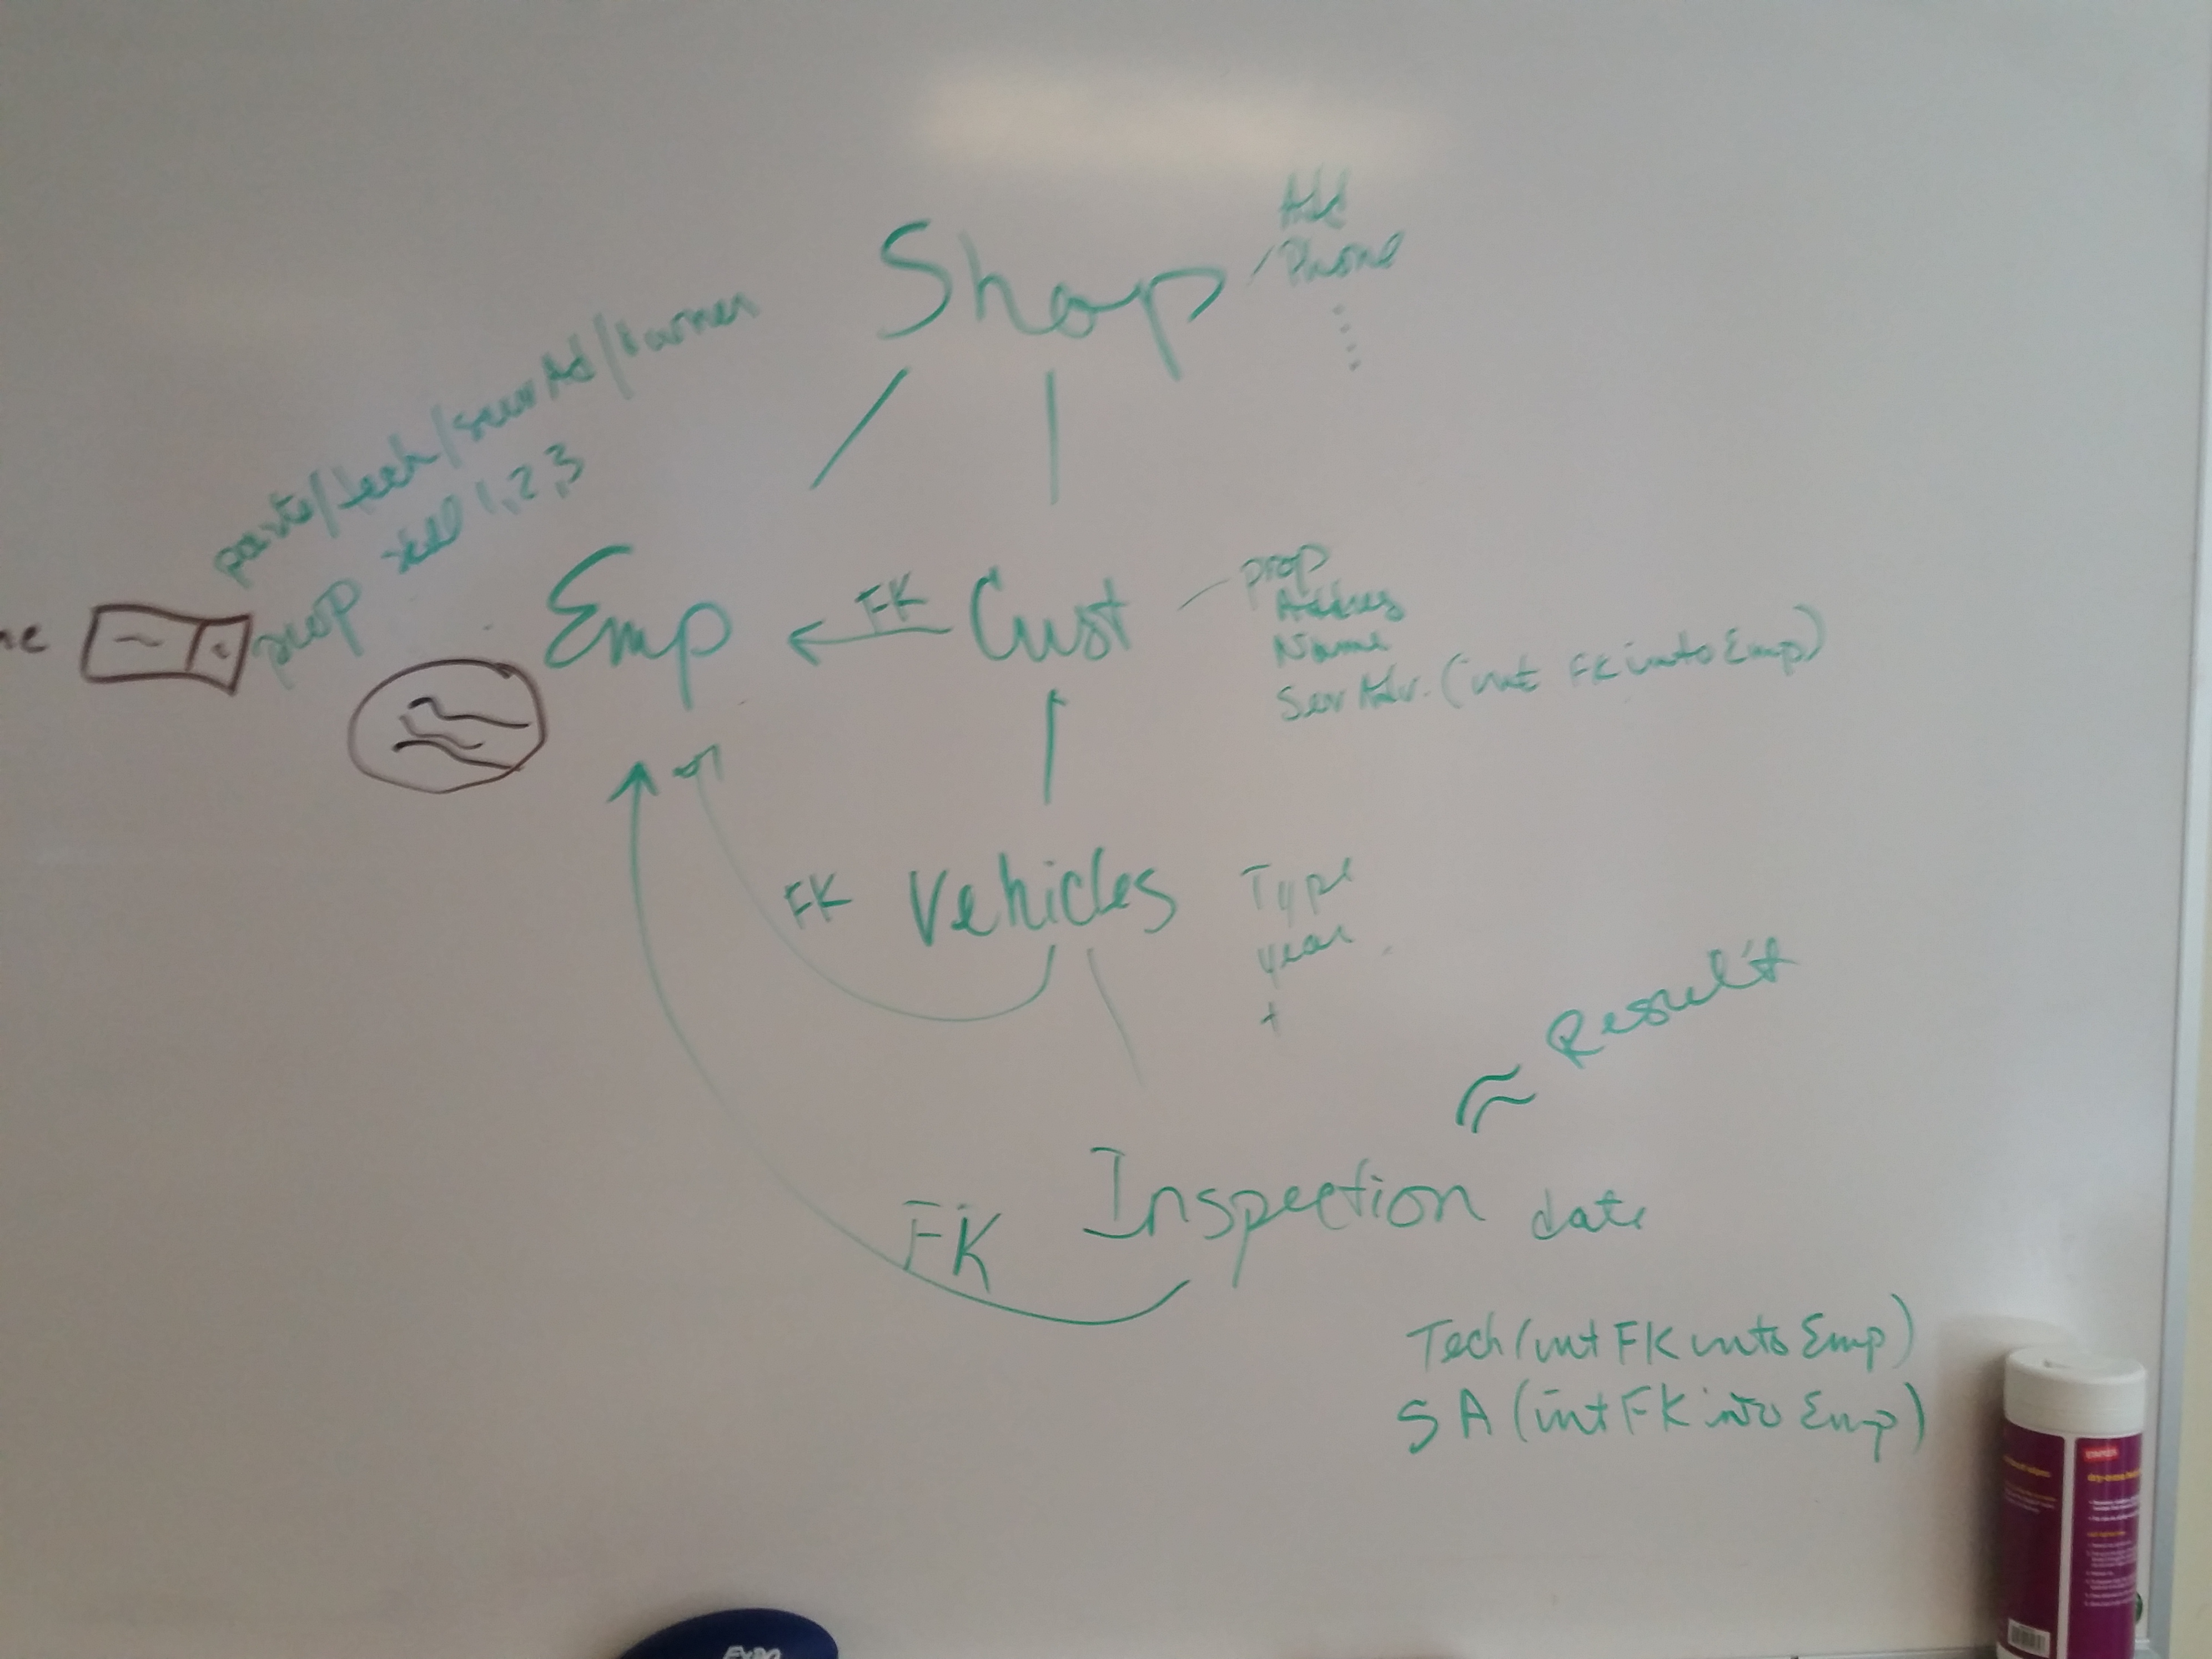 Shop
Add
Phone
parts/tech/servAd/
skill 1,2,3
prop
Emp
FK
Cust
prop
Address
Name
Serv Adv. (int FK into Emp)
FK
Vehicles
Type
year
+
Result
Inspection
date
FK
Tech (int FK into Emp)
SA (int FK into Emp)
EXPO
STAPLES